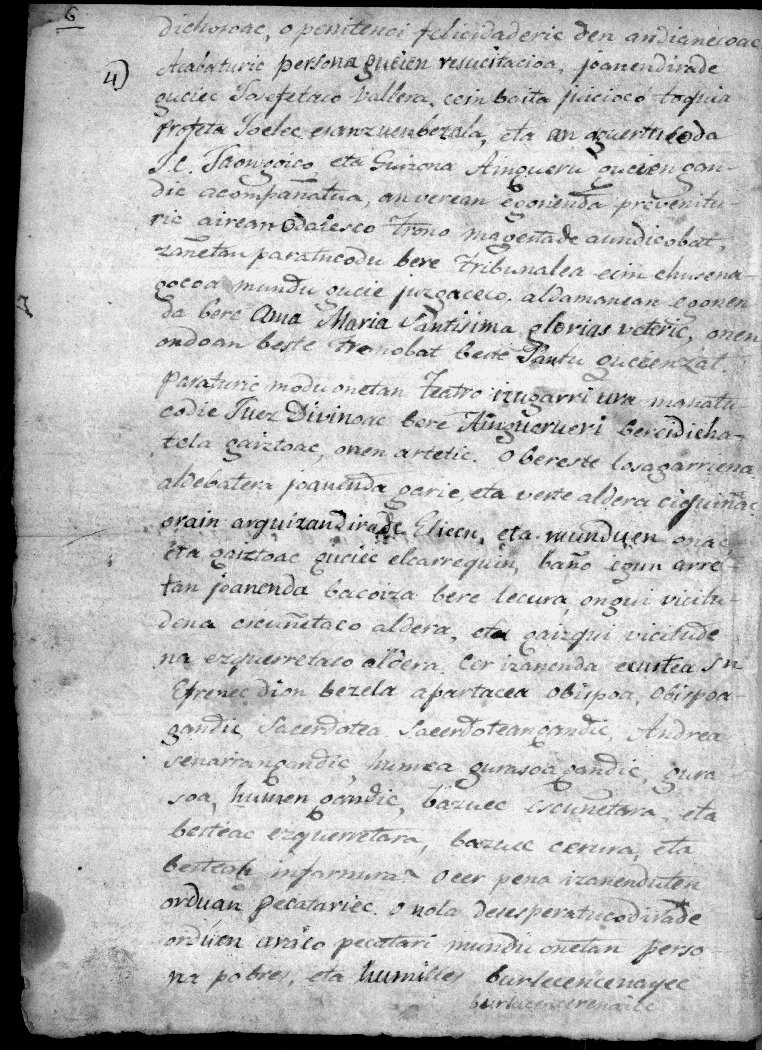 6
dichosoac, o penitenci felicidaderic den andianecoac,
4) Acabaturic persona gucien resucitacioa, joanendirade
guciec Josefetaco vallera, ceinbaita juicioco toquia
Profeta Joelec esanzuenbezala, eta an aguertucoda
J.C. Jaongoico eta Guizona Aingueru gucien gan-
dic acompañatua, an verean egonenda prevenitu-
ric airean odaiesco trono magestade aundicobat,
zañetan paratucodu bere tribunalea ecin chusena-
gocoa mundu gucie juzgaceco. aldamanean egonen
da bere Ama Maria Santisima glorias veteric, onen
ondoan beste tronobat beste Santu guciendat.
Paraturic modu onetan Teatro izugarri ura manatu
codie Juez Divinoac bere Ainguerueri bereidicha-
tela gaiztoac, onen artetic. O bereste losagarriena
aldebatera joanenda garie, eta veste aldera ciquiñac
orain arquizandirade Elicen, eta munduen onac,
eta gaiztoac guciec elcarrequin, baño egun arre-
tan joanenda bacoiza bere lecura, ongui vicitu-
dena escuñetaco aldera, eta gaizqui vicitude
na ezquerretaco aldera. Cer izanenda eustea Sn
Efrenec dion bezela apartacea obispoa, obispoa-
gandic, Sacerdotea Sacerdoteangandic, Andrea
senarrangandic, humea gurasoagandic, gura
soa, humengandic, bazuec escuñetara, eta
besteac ezquerretara, bazuec cerura, eta
besteak infernura? O cer pena izanenduten
orduan pecatariec. O nola desesperatucodirade
orduen araco pecatari mundu onetan perso-
na pobres, eta humilles burlecencenayec
burlacencerenaicc